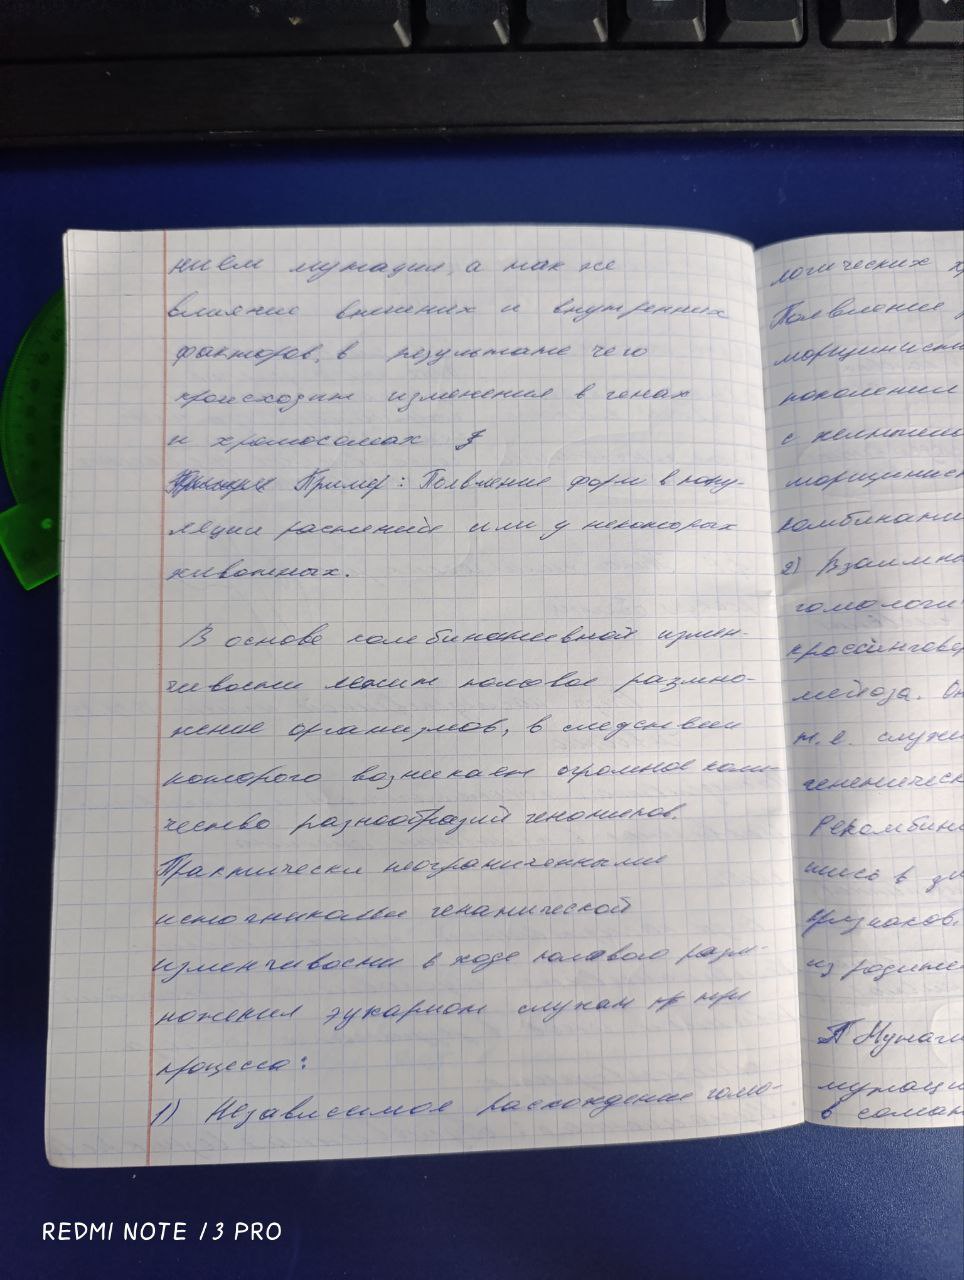 нием мутаций, а так же
влияние внешних и внутренних
факторов, в результате чего
происходит изменения в генах
и хромосомах
Пример: Появление форм в попу-
ляции растений или у некоторых
животных.
В основе комбинативной измен-
чивости лежит половое размно-
жение организмов, в следствии
которого возникает огромное коли-
чество разнообразий генотипов.
Практически неограниченными
источниками генетической
изменчивости в ходе полового разм-
ножения эукариот служат три
процесса:
1) Независимое расхождение гомо-
логических
Появление
морщинисты
поколении
с желтыми
морщинист
комбинати
2) Взаимны
гомологи
кроссингове
мейоза. Он
т.е. служи
генетическ
Рекомбина
шись в
признаков
из родите
Мутаци
мутаци
в сомат
REDMI NOTE 13 PRO